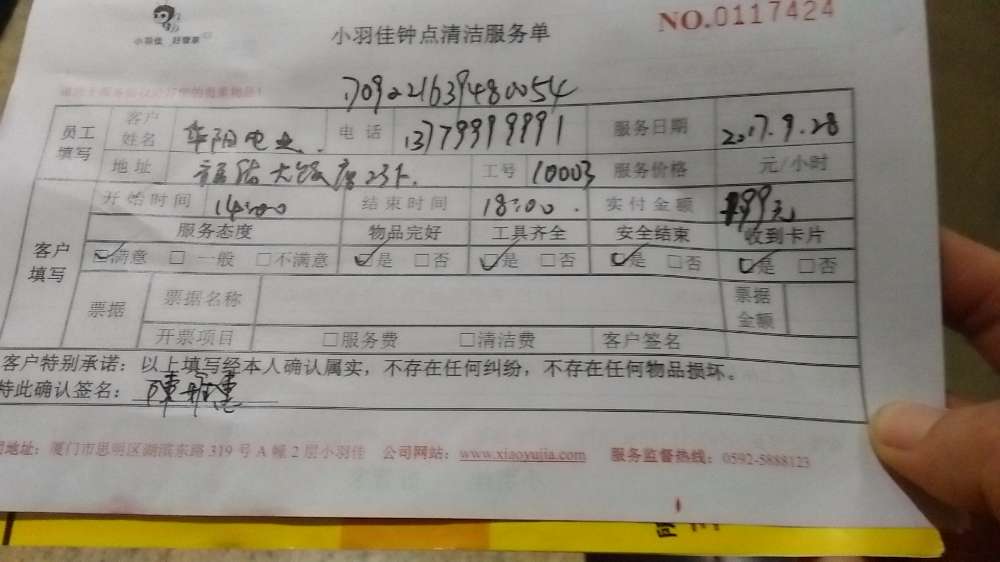 小羽佳 好管家
小羽佳钟点清洁服务单
NO.0117424
1709221639480054
员工填写 客户姓名 华阳电业 电话 13779999991 服务日期 2017.9.28
地址 大饭店23F 工号 10003 服务价格 元/小时
客户填写 开始时间 14:00 结束时间 18:00. 实付金额 99元
服务态度 物品完好 工具齐全 安全结束 收到卡片
☑满意 □一般 □不满意 ☑是 □否 ☑是 □否 ☑是 □否 ☑是 □否
票据 票据名称 票据金额
开票项目 □服务费 □清洁费 客户签名
客户特别承诺：以上填写经本人确认属实，不存在任何纠纷，不存在任何物品损坏。
特此确认签名：陳
地址：厦门市思明区湖滨东路 319 号 A 幢 2 层小羽佳 公司网站：www.xiaoyujia.com 服务监督热线：0592-5888123